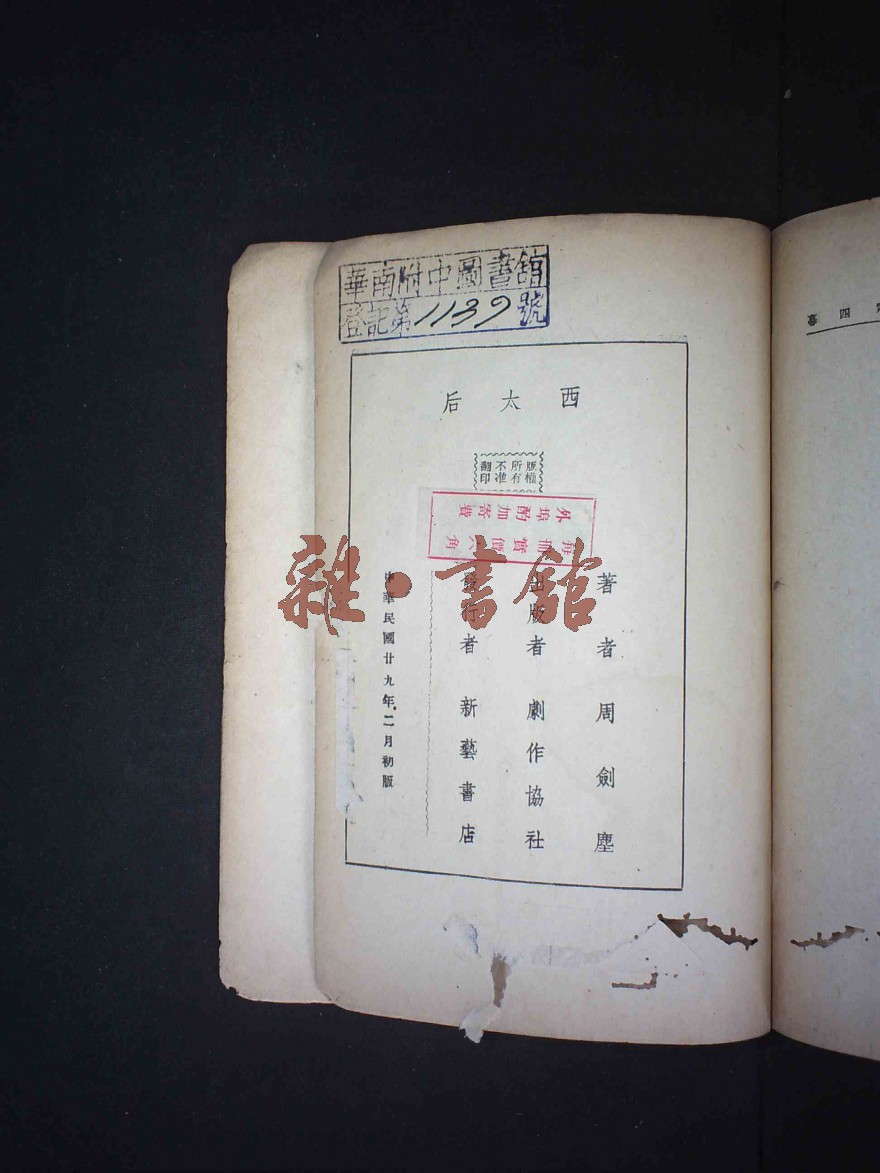 華南附中圖書舘
登記第1139號
西太后
版權所有
不准翻印
外埠酌加寄費
每冊實價六角
著者 周劍塵
出版者 劇作協社
發行者 新藝書店
中華民國廿九年二月初版
雜·書館
四幕